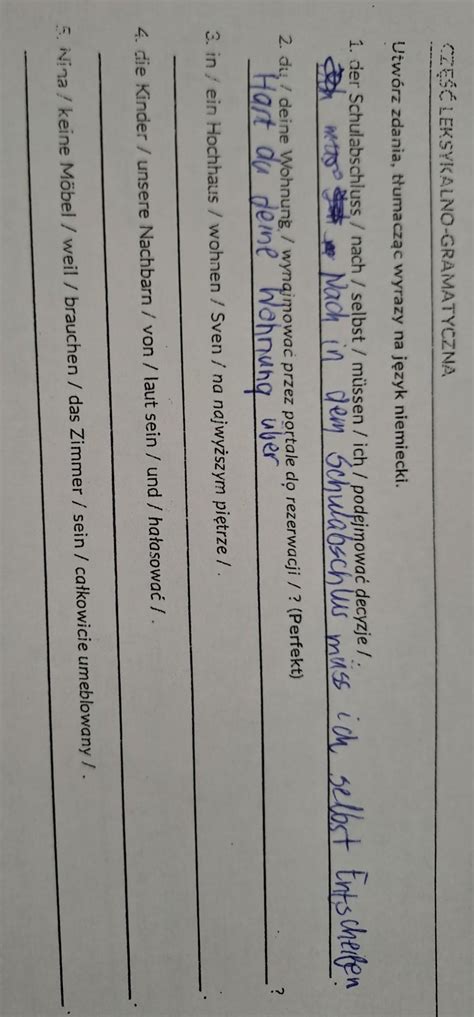 CZĘŚĆ LEKSYKALNO-GRAMATYCZNA
Utwórz zdania, tłumacząc wyrazy na język niemiecki.
1. der Schulabschluss / nach / selbst / müssen / ich / podejmować decyzje / .
Nach in dem Schulabschlus müss ich selbst Entscheiten.
2. du / deine Wohnung / wynajmować przez portale do rezerwacji / ? (Perfekt)
Hast du deine Wohnung über ?
3. in / ein Hochhaus / wohnen / Sven / na najwyższym piętrze / .
.
4. die Kinder / unsere Nachbarn / von / laut sein / und / hałasować / .
.
5. Nina / keine Möbel / weil / brauchen / das Zimmer / sein / całkowicie umeblowany / .
.